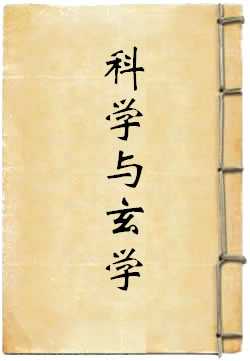 科学与玄学